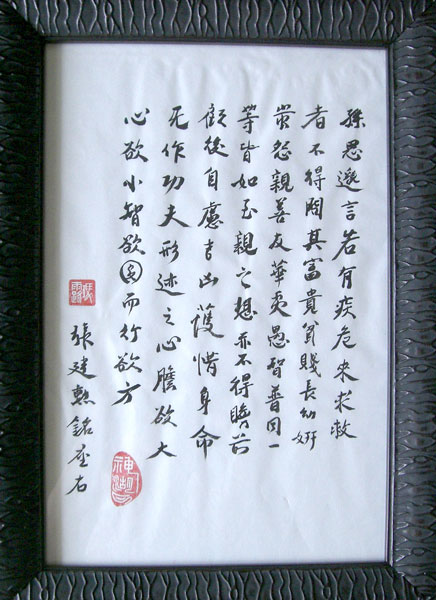 孫思邈言若有疾危來求救
者不得問其富貴貧賤長幼妍
蚩怨親善友華夷愚智普同一
等皆如至親之想亦不得瞻前
顧後自慮吉凶護惜身命
无作功夫形迹之心膽欲大
心欲小智欲圓而行欲方
張建勲銘座右